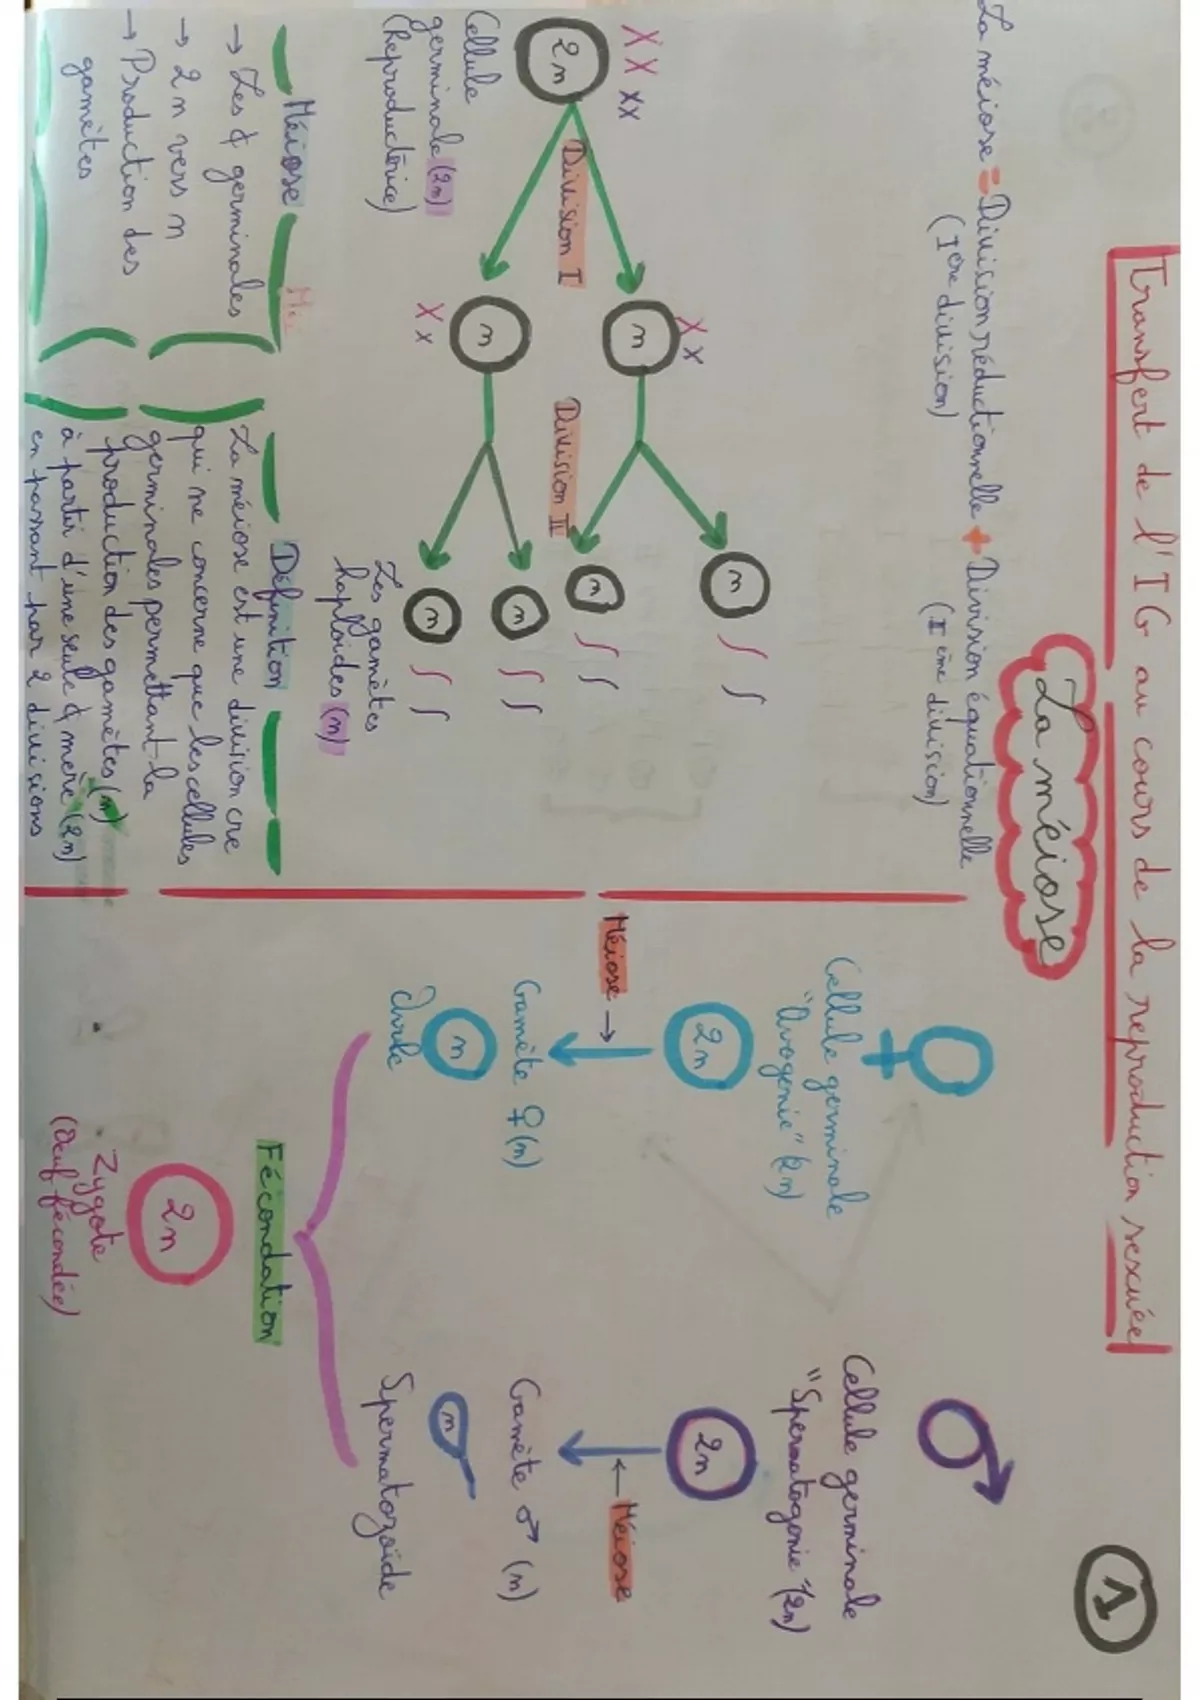 1
Transfert de l'IG au cours de la reproduction sexuée
La méiose
La méiose = Division réductionnelle + Division équationnelle
(Ière division) (IIème division)
XX xx
2n
Cellule
germinale (2n)
(Reproductrice)
Division I
X x
n
X x
n
Division II
n
n
n
n
Les gamètes
haploïdes (n)
Méiose
→ Les ¢ germinales
→ 2n vers n
→ Production des
gamètes
Définition
La méiose est une division cre
qui ne concerne que les cellules
germinales permettant la
production des gamètes (n)
à partir d'une seule ¢ mère (2n)
en passant par 2 divisions
♀
Cellule germinale
"Ovogenie" (2n)
2n
Méiose →
Gamète ♀ (n)
n
Ovule
♂
Cellule germinale
"Spermatogonie" (2n)
2n
← Méiose
Gamète ♂ (n)
n
Spermatozoïde
Fécondation
2n
Zygote
(Oeuf fécondée)